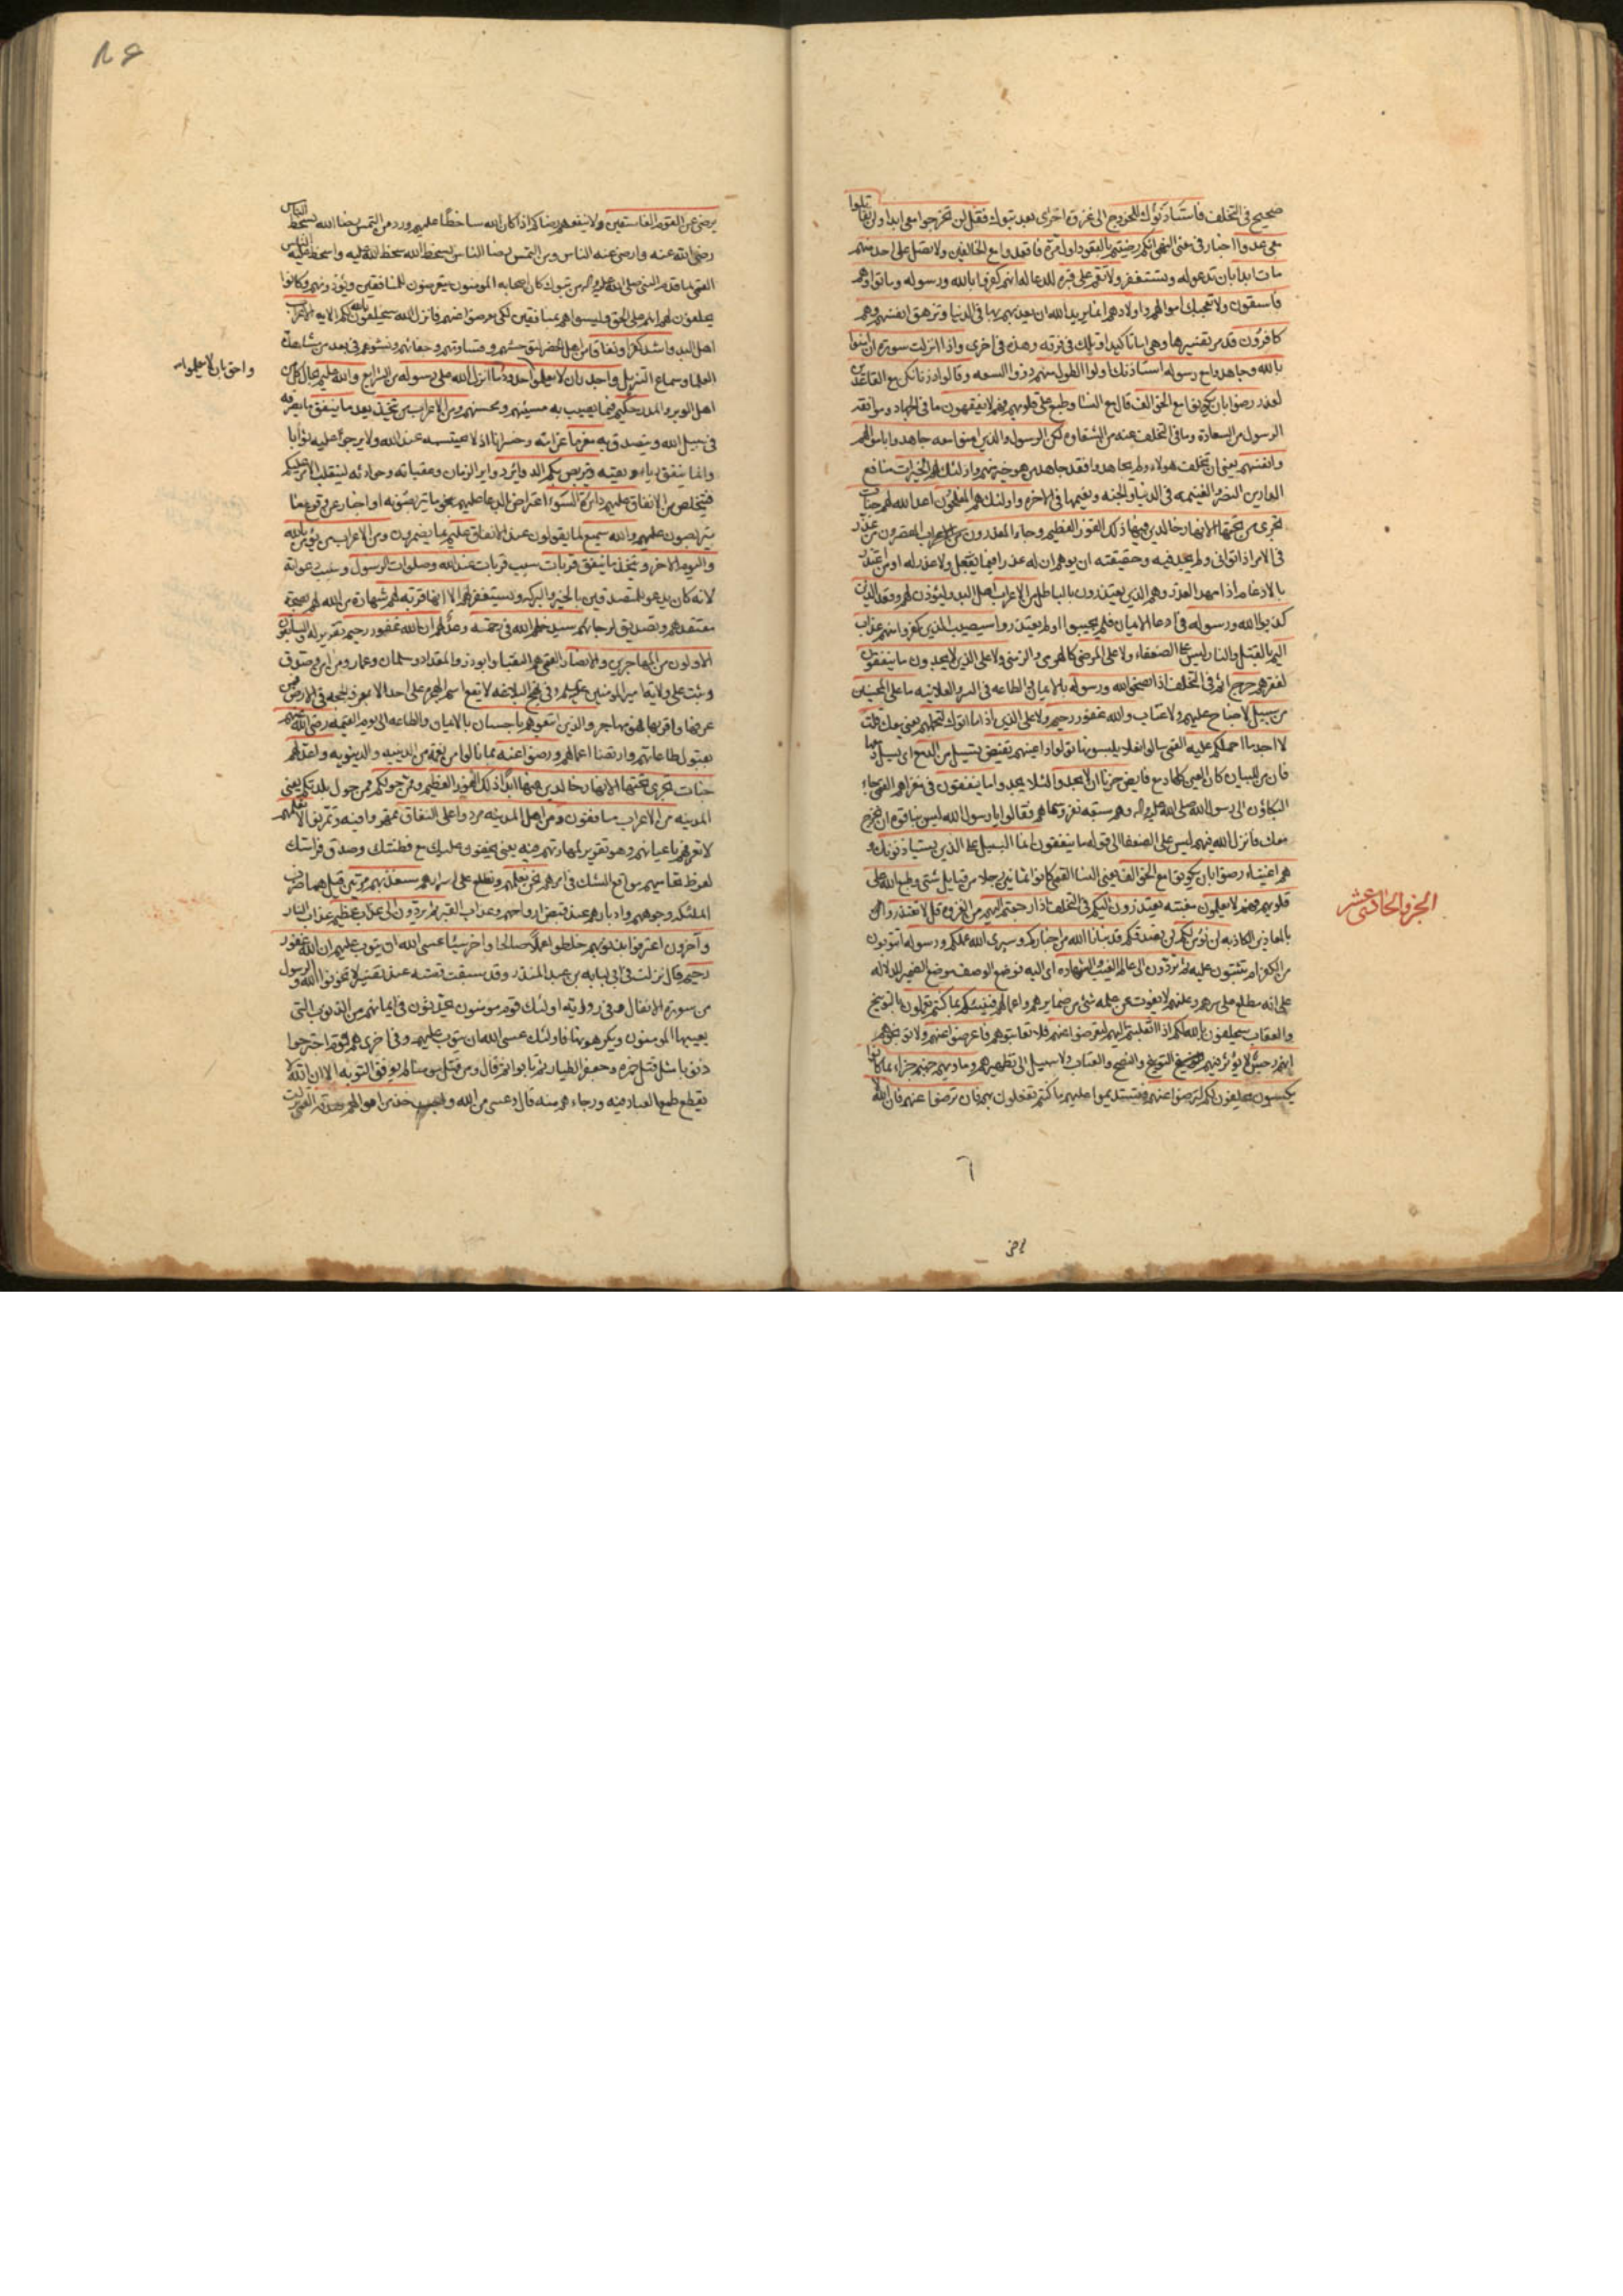 صحيح في التخلف فاستأذنوك للخروج الى غزوة اخرى بعد تبوك فقل لن تخرجوا معي ابدا ولن تقاتلوا
معي عدوا اخبار في معنى النهي انكم رضيتم بالقعود اول مرة فاقعدوا مع الخالفين ولا تصل على احد منهم
مات ابدا بان تدعو له وتستغفر ولا تقم على قبره للدعا له انهم كفروا بالله ورسوله وماتوا وهم
فاسقون ولا تعجبك اموالهم واولادهم انما يريد الله ان يعذبهم بها في الدنيا وتزهق انفسهم وهم
كافرون قد مر تفسيرها وهي اما تاكيد او تلك في فرقه وهذه في اخرى واذا انزلت سورة ان امنوا
بالله وجاهدوا مع رسوله استأذنك اولوا الطول منهم ذووا السعه وقالوا ذرنا نكن مع القاعدين
لعذر رضوا بان يكونوا مع الخوالف قال مع النسا وطبع على قلوبهم فهم لا يفقهون ما في الجهاد وموافقه
الرسول من السعادة وما في التخلف عنه من الشقاوه لكن الرسول والذين امنوا معه جاهدوا باموالهم
وانفسهم يعني ان تخلف هولاء ولم يجاهدوا فقد جاهد من هو خير منهم واولئك لهم الخيرات منافع
الدارين النصر والغنيمه في الدنيا والجنه ونعيمها في الاخره واولئك هم المفلحون اعد الله لهم جنات
تجري من تحتها الانهار خالدين فيها ذلك الفوز العظيم وجاء المعذرون من الاعراب المقصرون من عذر
في الامر اذا توانى ولم يجد فيه وحقيقته ان يوهم ان له عذرا فيما يفعل ولا عذر له او من اعتذر
بالادغام اذا مهد العذر وهم الذين يعتذرون بالباطل من الاعراب اهل البدو ليؤذن لهم وقعد الذين
كذبوا الله ورسوله في ادعا الايمان فلم يجيبوا ولم يعتذروا سيصيب الذين كفروا منهم عذاب
اليم بالقتل والنار ليس على الضعفاء ولا على المرضى كالهرمى والزمنى ولا على الذين لا يجدون ما ينفقون
لفقرهم حرج اثم في التخلف اذا نصحوا لله ورسوله بالايمان والطاعه في السر والعلانيه ما على المحسنين
من سبيل لا جناح عليهم ولا عتاب والله غفور رحيم ولا على الذين اذا ما اتوك لتحملهم يعني معك قلت
لا اجد ما احملكم عليه تولوا واعينهم تفيض يسيل من الدمع اي يسيل دمعها
فان من للبيان حزنا ان لا يجدوا لئلا يجدوا ما ينفقون في مغزاهم القمي جاء
البكاؤن الى رسول الله صلى الله عليه واله وهم سبعه فقالوا يا رسول الله ليس بنا قوة ان نخرج
معك فانزل الله فيهم ليس على الضعفا الى قوله ما ينفقون انما السبيل على الذين يستأذنونك و
هم اغنياء رضوا بان يكونوا مع الخوالف يعني النسا القمي كانوا ثمانين رجلا من قبايل شتى وطبع الله على
قلوبهم فهم لا يعلمون مغبته يعتذرون اليكم في التخلف اذا رجعتم اليهم من الغزوه قل لا تعتذروا
بالمعاذير الكاذبه لن نؤمن لكم لن نصدقكم قد نبأنا الله من اخباركم وسيرى الله عملكم ورسوله اتتوبون
من الكفر ام تثبتون عليه ثم تردون الى عالم الغيب والشهاده اي اليه فوضع الوصف موضع الضمير للدلاله
على انه مطلع على سرهم وعلنهم لا يفوت عن علمه شئ من ضمايرهم واعمالهم فينبئكم بما كنتم تعملون بالتوبيخ
والعقاب سيحلفون بالله لكم اذا انقلبتم اليهم لتعرضوا عنهم فلا تعاتبوهم فاعرضوا عنهم ولا توبخوهم
انهم رجس لا يؤثر فيهم التوبيخ والنصح والعتاب ولا سبيل الى تطهيرهم وماويهم جهنم جزاء بما كانوا
يكسبون يحلفون لكم لترضوا عنهم فتستديموا عليهم ما كنتم تفعلون بهم فان ترضوا عنهم فان الله
الجزو الحادي عشر
يرضى عن القوم الفاسقين ولا ينفعهم رضاكم اذا كان الله ساخطا عليهم ورد من التمس رضا الله بسخط الناس
رضي الله عنه وارضى عنه الناس ومن التمس رضا الناس بسخط الله سخط الله عليه واسخط عليه الناس
القمي لما قدم النبي صلى الله عليه واله من تبوك كان اصحابه المومنون يتعرضون للمنافقين ويؤذونهم وكانوا
يحلفون لهم انهم على الحق وليسوا هم بمنافقين لكي يعرضوا عنهم فانزل الله سيحلفون بالله لكم الايه الاعراب
اهل البدو اشد كفرا ونفاقا من اهل الحضر وقساوتهم وجفائهم ونشوهم في بعد من مشاهدة
العلما وسماع التنزيل واجدر ان لا يعلموا حدود ما انزل الله على رسوله من الشرايع والله عليم بحال كل من
اهل الوبر والمدر حكيم فيما يصيب به مسيئهم ومحسنهم ومن الاعراب من يتخذ يعد ما ينفق ما يصرفه
في سبيل الله ويتصدق به مغرما غرامة وخسرانا اذ لا يحتسبه عند الله ولا يرجو عليه ثوابا
وانما ينفق رياء وتقيه ويتربص بكم الدوائر دواير الزمان وعقباته وحوادثه لينقلب الامر عليكم
فيتخلص من الانفاق عليهم دائرة السوء اعتراض بالدعا عليهم بنحو ما يتربصونه او اخبار عن وقوع ما
يتربصون عليهم والله سميع لما يقولون عند الانفاق عليم بما يضمرون ومن الاعراب من يؤمن بالله
واليوم الاخر ويتخذ ما ينفق قربات سبب قربات عند الله وصلوات الرسول وسبب دعواته
لانه كان يدعو للمتصدقين بالخير والبركه ويستغفر لهم الا انها قربة لهم شهادة من الله لهم بصحة
معتقدهم وتصديق لرجائهم سيدخلهم الله في رحمته وعد لهم ان الله غفور رحيم تقرير له والسابقون
الاولون من المهاجرين والانصار القمي هم النقبا وابوذر والمقداد وسلمان وعمار ومن امن وصدق
وثبت على ولاية امير المومنين عليه السلم وفي نهج البلاغه لا يقع اسم الهجرة على احد الا بمعرفة الحجه في الارض فمن
عرفها واقر بها فهو مهاجر والذين اتبعوهم باحسان بالايمان والطاعه الى يوم القيمه رضي الله عنهم
بقبول طاعاتهم وارتضا اعمالهم ورضوا عنه بما نالوا من نعمه الدينيه والدنيويه واعد لهم
جنات تجري تحتها الانهار خالدين فيها ابدا ذلك الفوز العظيم وممن حولكم ممن حول بلدتكم يعني
المدينه من الاعراب منافقون ومن اهل المدينه مردوا على النفاق تمهروا فيه وتمرنوا لا تعلمهم
لا تعرفهم باعيانهم وهو تقرير لمهارتهم فيه يعني يخفون عليك مع فطنتك وصدق فراستك
لفرط تحاميهم مواقع الشك في امرهم نحن نعلمهم ونطلع على اسرارهم سنعذبهم مرتين قيل هما ضرب
الملئكه وجوههم وادبارهم عند قبض ارواحهم وعذاب القبر ثم يردون الى عذاب عظيم عذاب النار
وآخرون اعترفوا بذنوبهم خلطوا عملا صالحا واخر سيئا عسى الله ان يتوب عليهم ان الله غفور
رحيم قال نزلت في ابي لبابه بن عبد المنذر وقد سبقت قصته عند تفسير لا تخونوا الله والرسول
من سورة الانفال وفي رواية اولئك قوم مومنون يحدثون في ايمانهم من الذنوب التي
يعيبها المومنون ويكرهونها فاولئك عسى الله ان يتوب عليهم وفي اخرى هم قوم اجترحوا
ذنوبا مثل قتل حمزه وجعفر الطيار ثم تابوا ثم قال ومن قتل مومنا لم يوفق للتوبه الا ان الله لا
يقطع طمع العباد فيه ورجاءهم منه قال وعسى من الله واجب خذ من اموالهم صدقة القمي نزلت
واحق بان لا يعلموا